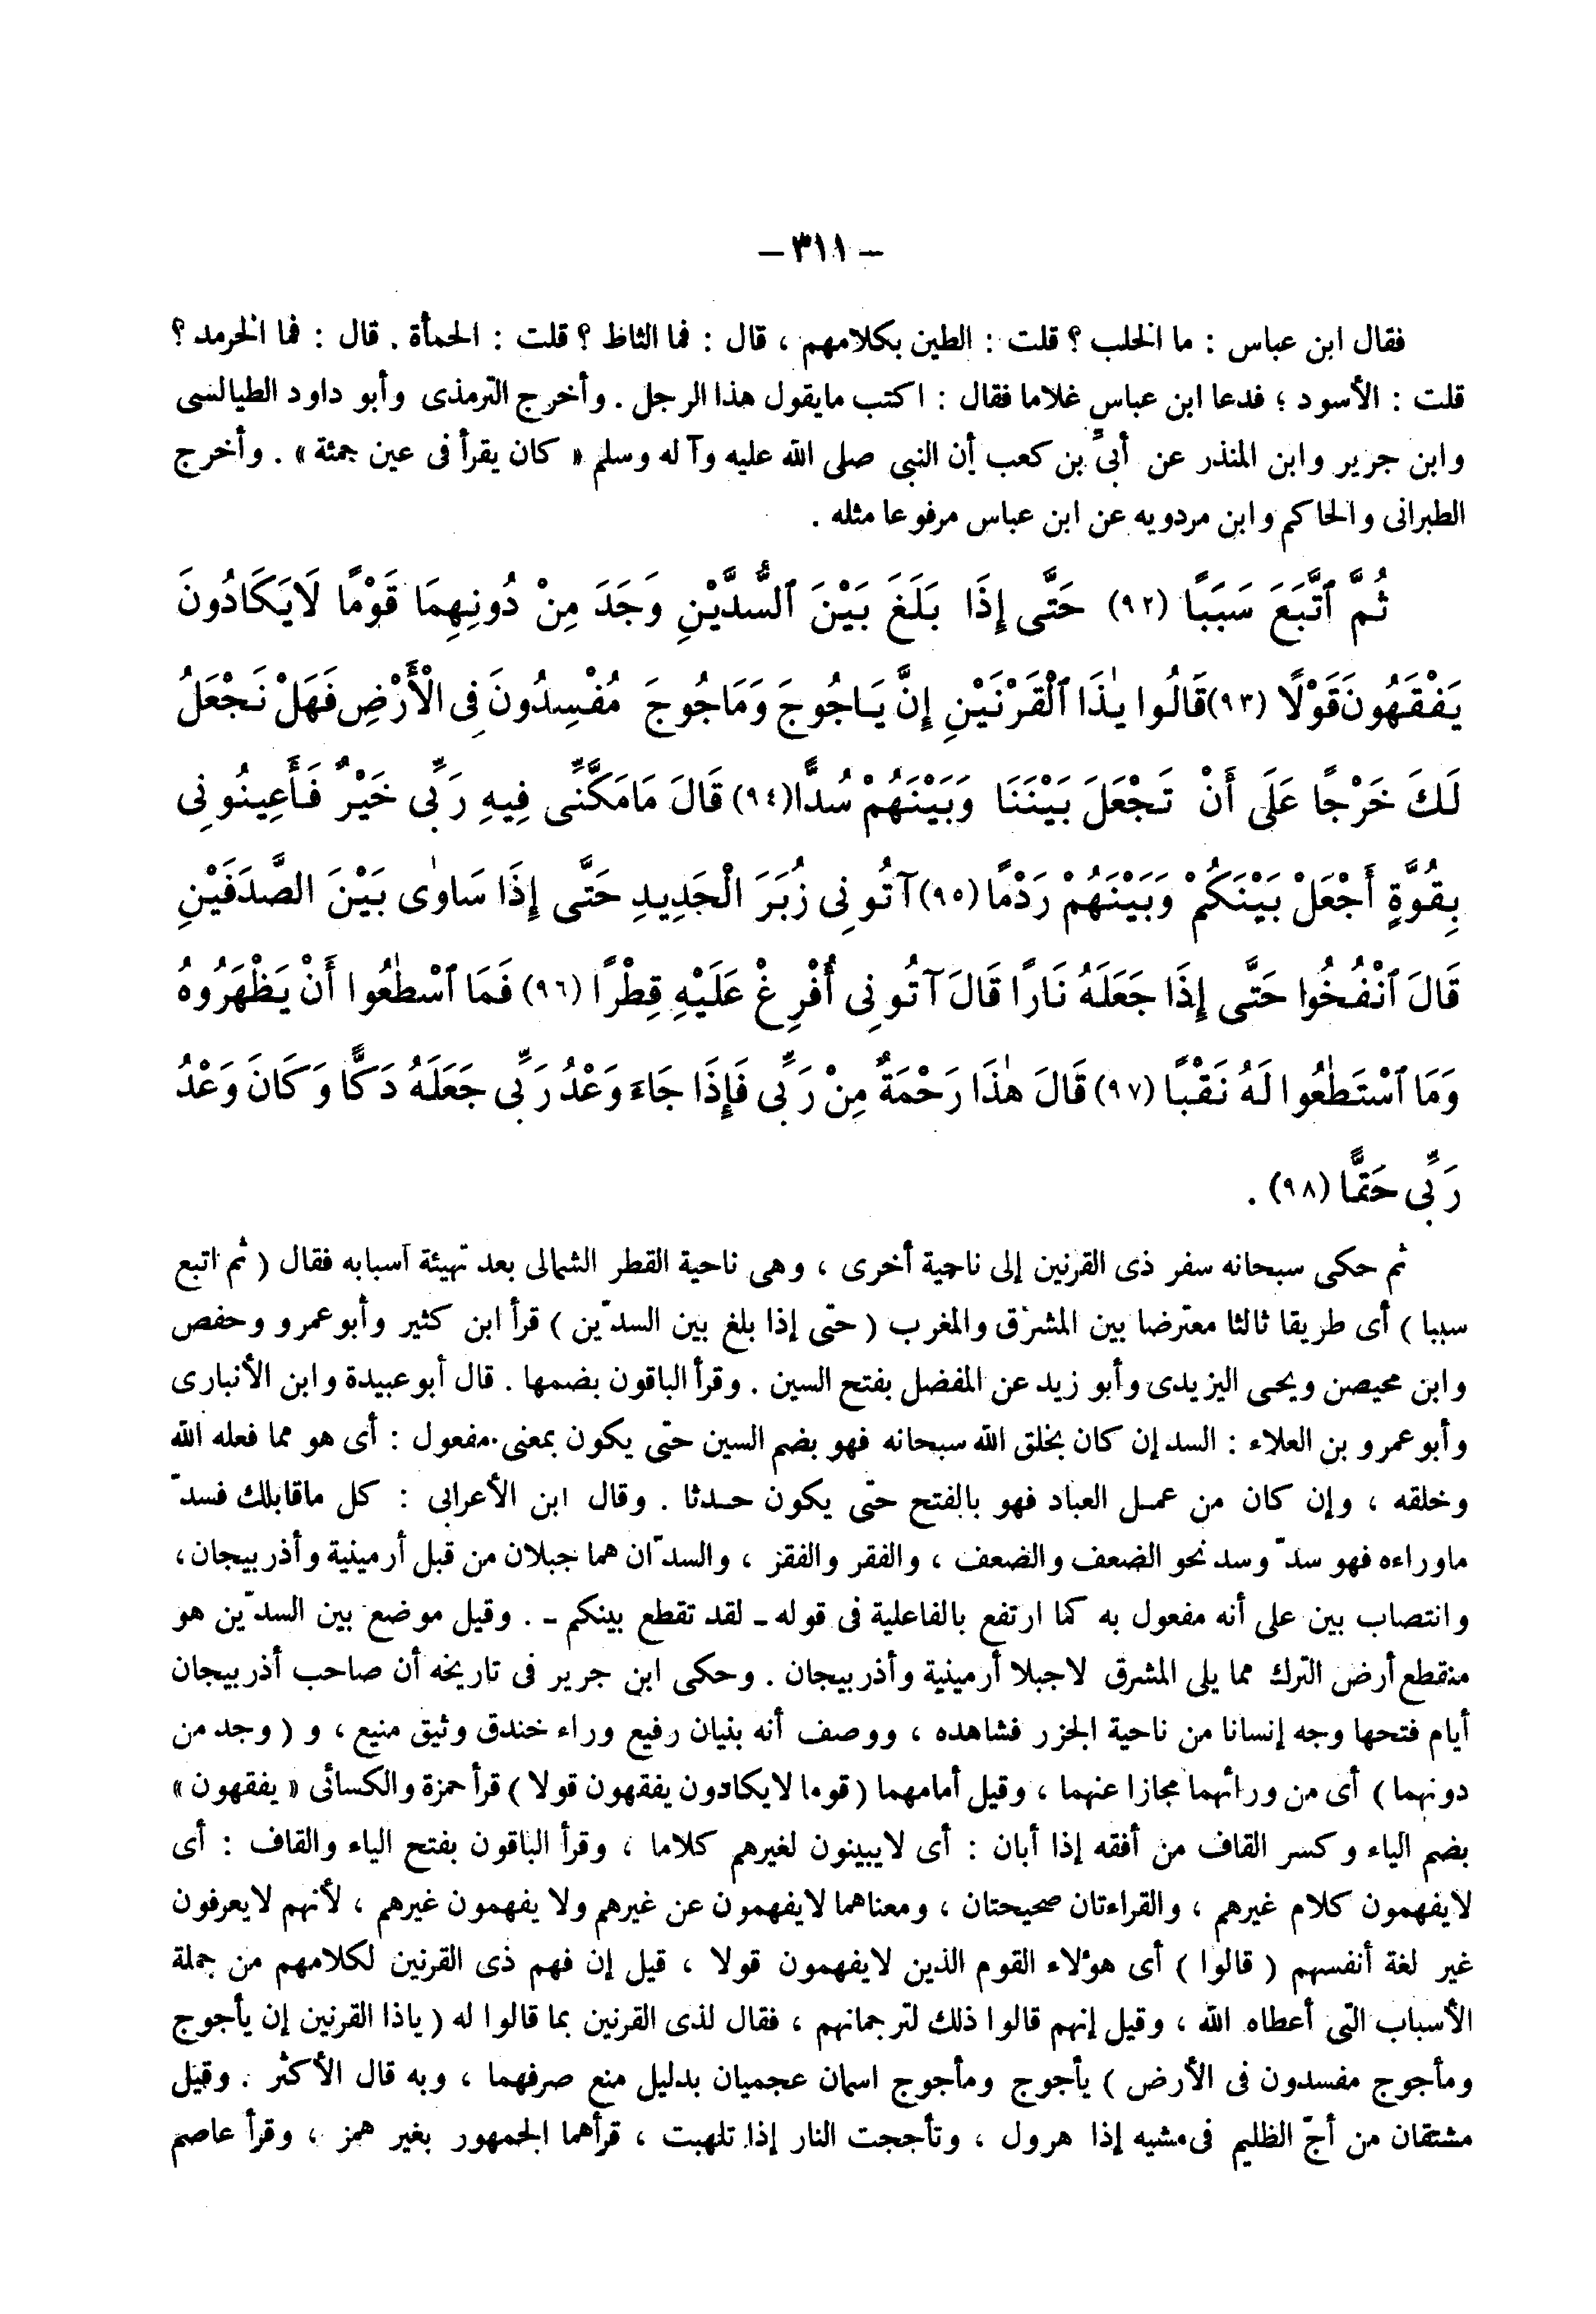 — ٣١١ —
فقال ابن عباس : ما الخلب ؟ قلت : الطين بكلامهم ، قال : فما الثاظ ؟ قلت : الحمأة . قال : فما الخرمد ؟
قلت : الأسود ؛ فدعا ابن عباس غلاما فقال : اكتب مايقول هذا الرجل . وأخرج الترمذى وأبو داود الطيالسى
وابن جرير وابن المنذر عن أبىّ بن كعب أن النبى صلى الله عليه وآله وسلم « كان يقرأ فى عين حمئة » . وأخرج
الطبرانى والحاكم وابن مردويه عن ابن عباس مرفوعا مثله .
ثُمَّ ٱتَّبَعَ سَبَبًا (٩٢) حَتَّى إِذَا بَلَغَ بَيْنَ ٱلسُّدَّيْنِ وَجَدَ مِنْ دُونِهِمَا قَوْمًا لَايَكَادُونَ
يَفْقَهُونَ قَوْلًا (٩٣) قَالُوا يٰذَا ٱلْقَرْنَيْنِ إِنَّ يَاجُوجَ وَمَاجُوجَ مُفْسِدُونَ فِى الْأَرْضِ فَهَلْ نَجْعَلُ
لَكَ خَرْجًا عَلَى أَنْ تَجْعَلَ بَيْنَنَا وَبَيْنَهُمْ سُدًّا (٩٤) قَالَ مَامَكَّنِّى فِيهِ رَبِّى خَيْرٌ فَأَعِينُونِى
بِقُوَّةٍ أَجْعَلْ بَيْنَكُمْ وَبَيْنَهُمْ رَدْمًا (٩٥) آتُونِى زُبَرَ الْحَدِيدِ حَتَّى إِذَا سَاوٰى بَيْنَ الصَّدَفَيْنِ
قَالَ ٱنْفُخُوا حَتَّى إِذَا جَعَلَهُ نَارًا قَالَ آتُونِى أُفْرِغْ عَلَيْهِ قِطْرًا (٩٦) فَمَا ٱسْطٰعُوا أَنْ يَظْهَرُوهُ
وَمَا ٱسْتَطٰعُوا لَهُ نَقْبًا (٩٧) قَالَ هٰذَا رَحْمَةٌ مِنْ رَبِّى فَإِذَا جَاءَ وَعْدُ رَبِّى جَعَلَهُ دَكًّا وَكَانَ وَعْدُ
رَبِّى حَقًّا (٩٨) .
ثم حكى سبحانه سفر ذى القرنين إلى ناحية أخرى ، وهى ناحية القطر الشمالى بعد تهيئة أسبابه فقال ( ثم اتبع
سببا ) أى طريقا ثالثا معترضا بين المشرق والمغرب ( حتى إذا بلغ بين السدّين ) قرأ ابن كثير وأبو عمرو وحفص
وابن محيصن ويحيى اليزيدى وأبو زيد عن المفضل بفتح السين . وقرأ الباقون بضمها . قال أبو عبيدة وابن الأنبارى
وأبو عمرو بن العلاء : السد إن كان بخلق الله سبحانه فهو بضم السين حتى يكون بمعنى مفعول : أى هو مما فعله الله
وخلقه ، وإن كان من عمل العباد فهو بالفتح حتى يكون حدثا . وقال ابن الأعرابى : كل ماقابلك فسدّ
ماوراءه فهو سدّ وسد نحو الضعف والضعف ، والفقر والفقز ، والسدّان هما جبلان من قبل أرمينية وأذربيجان ،
وانتصاب بين على أنه مفعول به كما ارتفع بالفاعلية فى قوله ـ لقد تقطع بينكم ـ . وقيل موضع بين السدّين هو
منقطع أرض الترك مما يلى المشرق لاجبلا أرمينية وأذربيجان . وحكى ابن جرير فى تاريخه أن صاحب أذربيجان
أيام فتحها وجه إنسانا من ناحية الجزر فشاهده ، ووصف أنه بنيان رفيع وراء خندق وثيق منيع ، و ( وجد من
دونهما ) أى من ورائهما مجازا عنهما ، وقيل أمامهما ( قوما لايكادون يفقهون قولا ) قرأ حمزة والكسائى « يفقهون »
بضم الياء وكسر القاف من أفقه إذا أبان : أى لايبينون لغيرهم كلاما ، وقرأ الباقون بفتح الياء والقاف : أى
لايفهمون كلام غيرهم ، والقراءتان صحيحتان ، ومعناهما لايفهمون عن غيرهم ولا يفهمون غيرهم ، لأنهم لايعرفون
غير لغة أنفسهم ( قالوا ) أى هؤلاء القوم الذين لايفهمون قولا ، قيل إن فهم ذى القرنين لكلامهم من جملة
الأسباب التى أعطاه الله ، وقيل إنهم قالوا ذلك لترجمانهم ، فقال لذى القرنين بما قالوا له ( ياذا القرنين إن يأجوج
ومأجوج مفسدون فى الأرض ) يأجوج ومأجوج اسمان عجميان بدليل منع صرفهما ، وبه قال الأكثر . وقيل
مشتقان من أجّ الظليم فى مشيه إذا هرول ، وتأججت النار إذا تلهبت ، قرأهما الجمهور بغير همز ، وقرأ عاصم